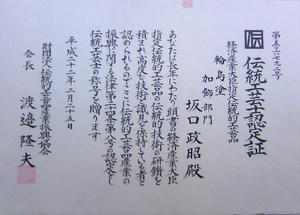 伝統工芸士認定証
経済産業大臣指定伝統的工芸品
輪島塗
加飾部門
坂口政昭殿
あなたは永年にわたり頭書の経済産業大臣
指定伝統的工芸品の伝統的技術の研鑽を
積まれ高度な技術と識見を保持している者と
認められるのでここに伝統的工芸品産業の
振興に関する法律第二十四条第八号の認定をし
伝統工芸士の称号を贈ります
平成二十三年二月二十五日
財団法人伝統的工芸品産業振興協会
会長 渡邉隆夫